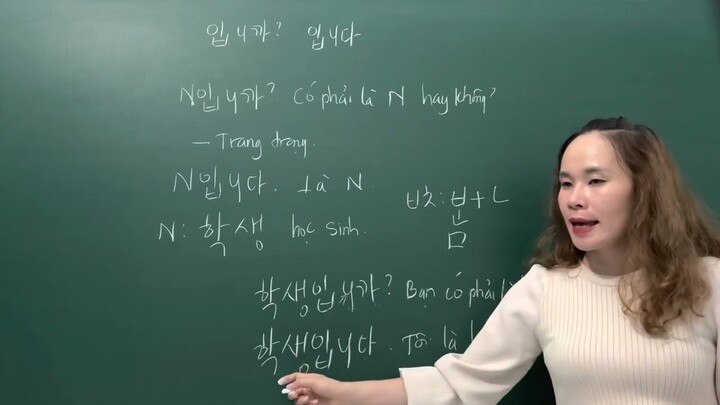 입니까? 입니다
N입니까? Có phải là N hay không?
- Trang trọng.
N입니다. Là N.
N: 학생 học sinh.
ㅂ + ㄴ
ㅁ
학생입니까? Bạn có phải là
학생입니다. Tôi là